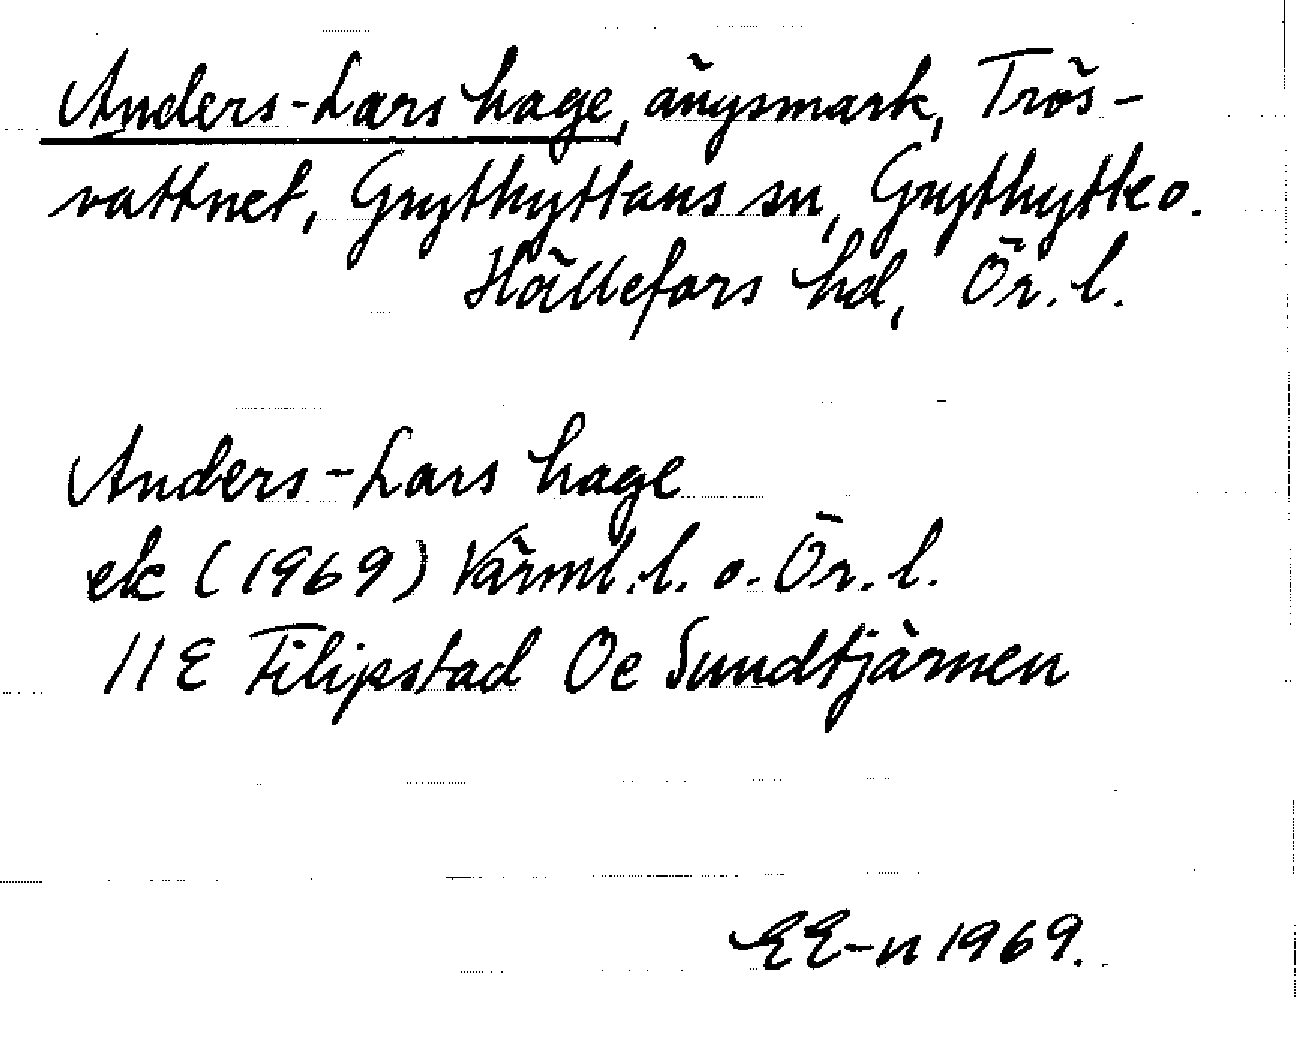 Anders-Lars hage, ängsmark, Trös-
vattnet, Grythyttans sn, Grythytte o.
Hällefors hd, Ör. l.
Anders-Lars hage
ek (1969) Värml. l. o. Ör. l.
11E Filipstad Oe Sundtjärnen
EE-n 1969.